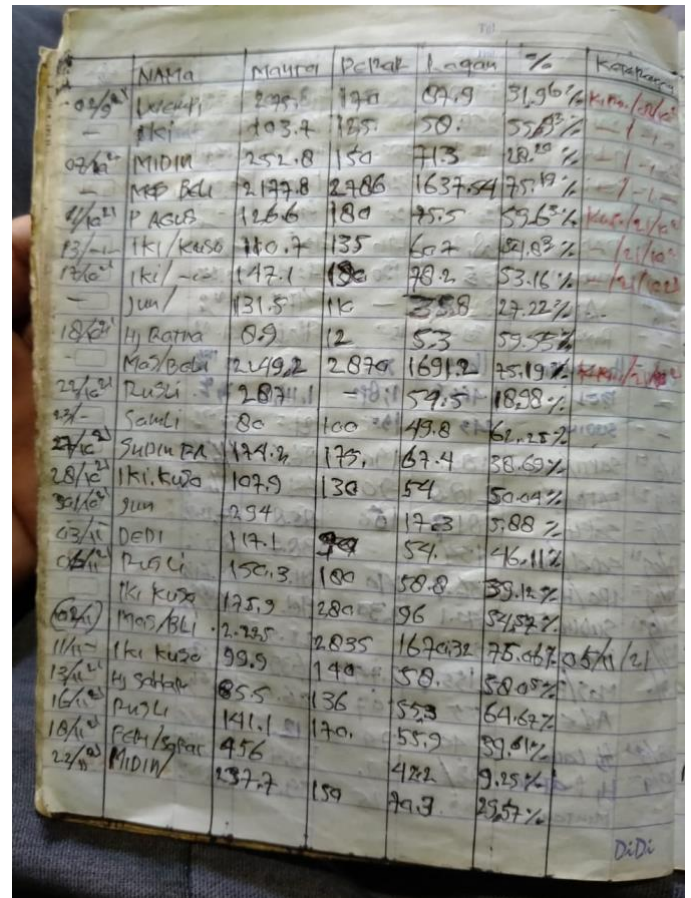 NAMa Mayam Perak Logam % Keterangan
02/9 21 170 87.9 31.96%
- Iki 103.4 125. 58. - 1 -
02/10 21 MIDIN 252.8 150 71.3 28.20 % - 1 - 1 -
- Mas BELi 2177.8 2786 1637.54 75.19 % - 1 - 1 -
11/10 21 P AGUS 126.6 180 75.5 59.63%
13/-"- IKI / KUSO 110.7 135 60.7
17/10 21 Iki / 147.1 180 78.2 53.16 %
- Jun / 131.5 110 - 35.8 27.22%
18/10 21 Hj Ratna 8.9 12 5.3 59.55%
- Mas/Beli 2249.2 2870 1691.2 75.19%
22/10 21 Rusli 287.1 - 54.5 18.98 %
23/- Samli 80 100 49.8 62.25%
27/10 21 SUDIN 174.2 175, 67.4 38.69%
28/10 21 IKi. Kuso 107.9 130 54 50.04%
30/10 21 Jun 294 17.3 5.88 %
03/11 DEDI 117.1 54. 46.11%
06/11 21 Rusli 150.3 180 58.8 39.12 %
Iki Kuso 175.9 280 96 54.57%
Mas/BLi 2.225 2835 1670.32 75.06% 05/11/21
11/11- Iki Kuso 99.9 140 58. 58.05%
13/11 21 Hj 85.5 136 55.3 64.67%
16/11 21 Rusli 141.1 170. 55.9 39.61%
18/11 21 456 42.2 9.25%
22/11 21 MIDIN/ 237.7 150 70.3 29.57%
DiDi